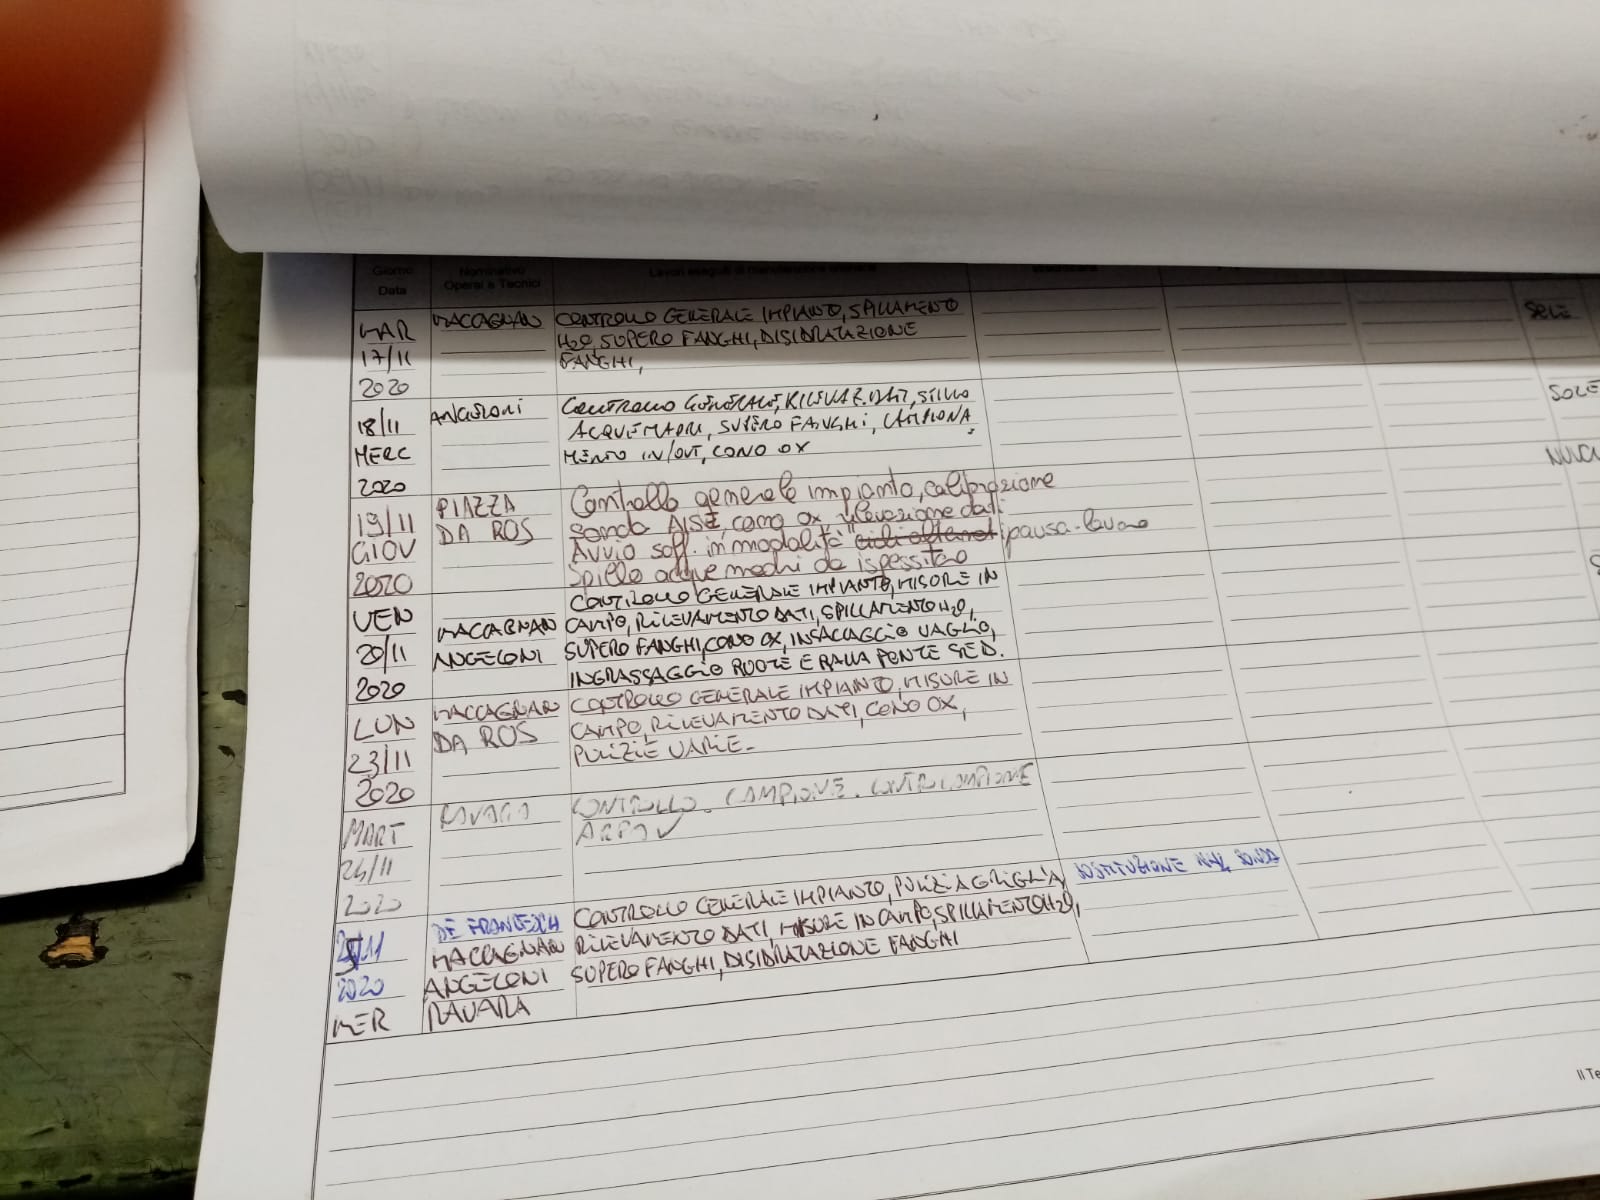 Giorno
Data
Nominativo
Operai e Tecnici
Lavori eseguiti di manutenzione ordinaria
MAR
17/11
2020
MACCAGNAN
CONTROLLO GENERALE IMPIANTO, SPILLAMENTO
H2O, SUPERO FANGHI, DISIDRATAZIONE
FANGHI,
SOLE
18/11
MERC
2020
ANGELONI
CONTROLLO GENERALE, RILEVAZ. DATI, SPILLO
ACQUE MADRI, SUPERO FANGHI, CAMPIONA
MENTO IN/OUT, CONO OX
SOLE
19/11
GIOV
2020
PIAZZA
DA ROS
Controllo generale impianto, calibrazione
sonda AISE, cono ox, rilevazione dati
Avvio soff. in modalità pausa-lavoro
Spillo acque madri da ispessitore
VEN
20/11
2020
MACCAGNAN
ANGELONI
CONTROLLO GENERALE IMPIANTO, MISURE IN
CAMPO, RILEVAMENTO DATI, SPILLAMENTO H2O,
SUPERO FANGHI, CONO OX, INSACCAGGIO VAGLIO,
INGRASSAGGIO RUOTE E RALLA PONTE SED.
LUN
23/11
2020
MACCAGNAN
DA ROS
CONTROLLO GENERALE IMPIANTO, MISURE IN
CAMPO, RILEVAMENTO DATI, CONO OX,
PULIZIE VARIE.
MART
24/11
2020
RAVARA
CONTROLLO. CAMPIONE. CONTROCAMPIONE
ARPAV
25/11
2020
MER
DE FRANCESCH
MACCAGNAN
ANGELONI
RAVARA
CONTROLLO GENERALE IMPIANTO, PULIZIA GRIGLIA,
RILEVAMENTO DATI, MISURE IN CAMPO, SPILLAMENTO H2O,
SUPERO FANGHI, DISIDRATAZIONE FANGHI
SOSTITUZIONE SONDA
Il Te